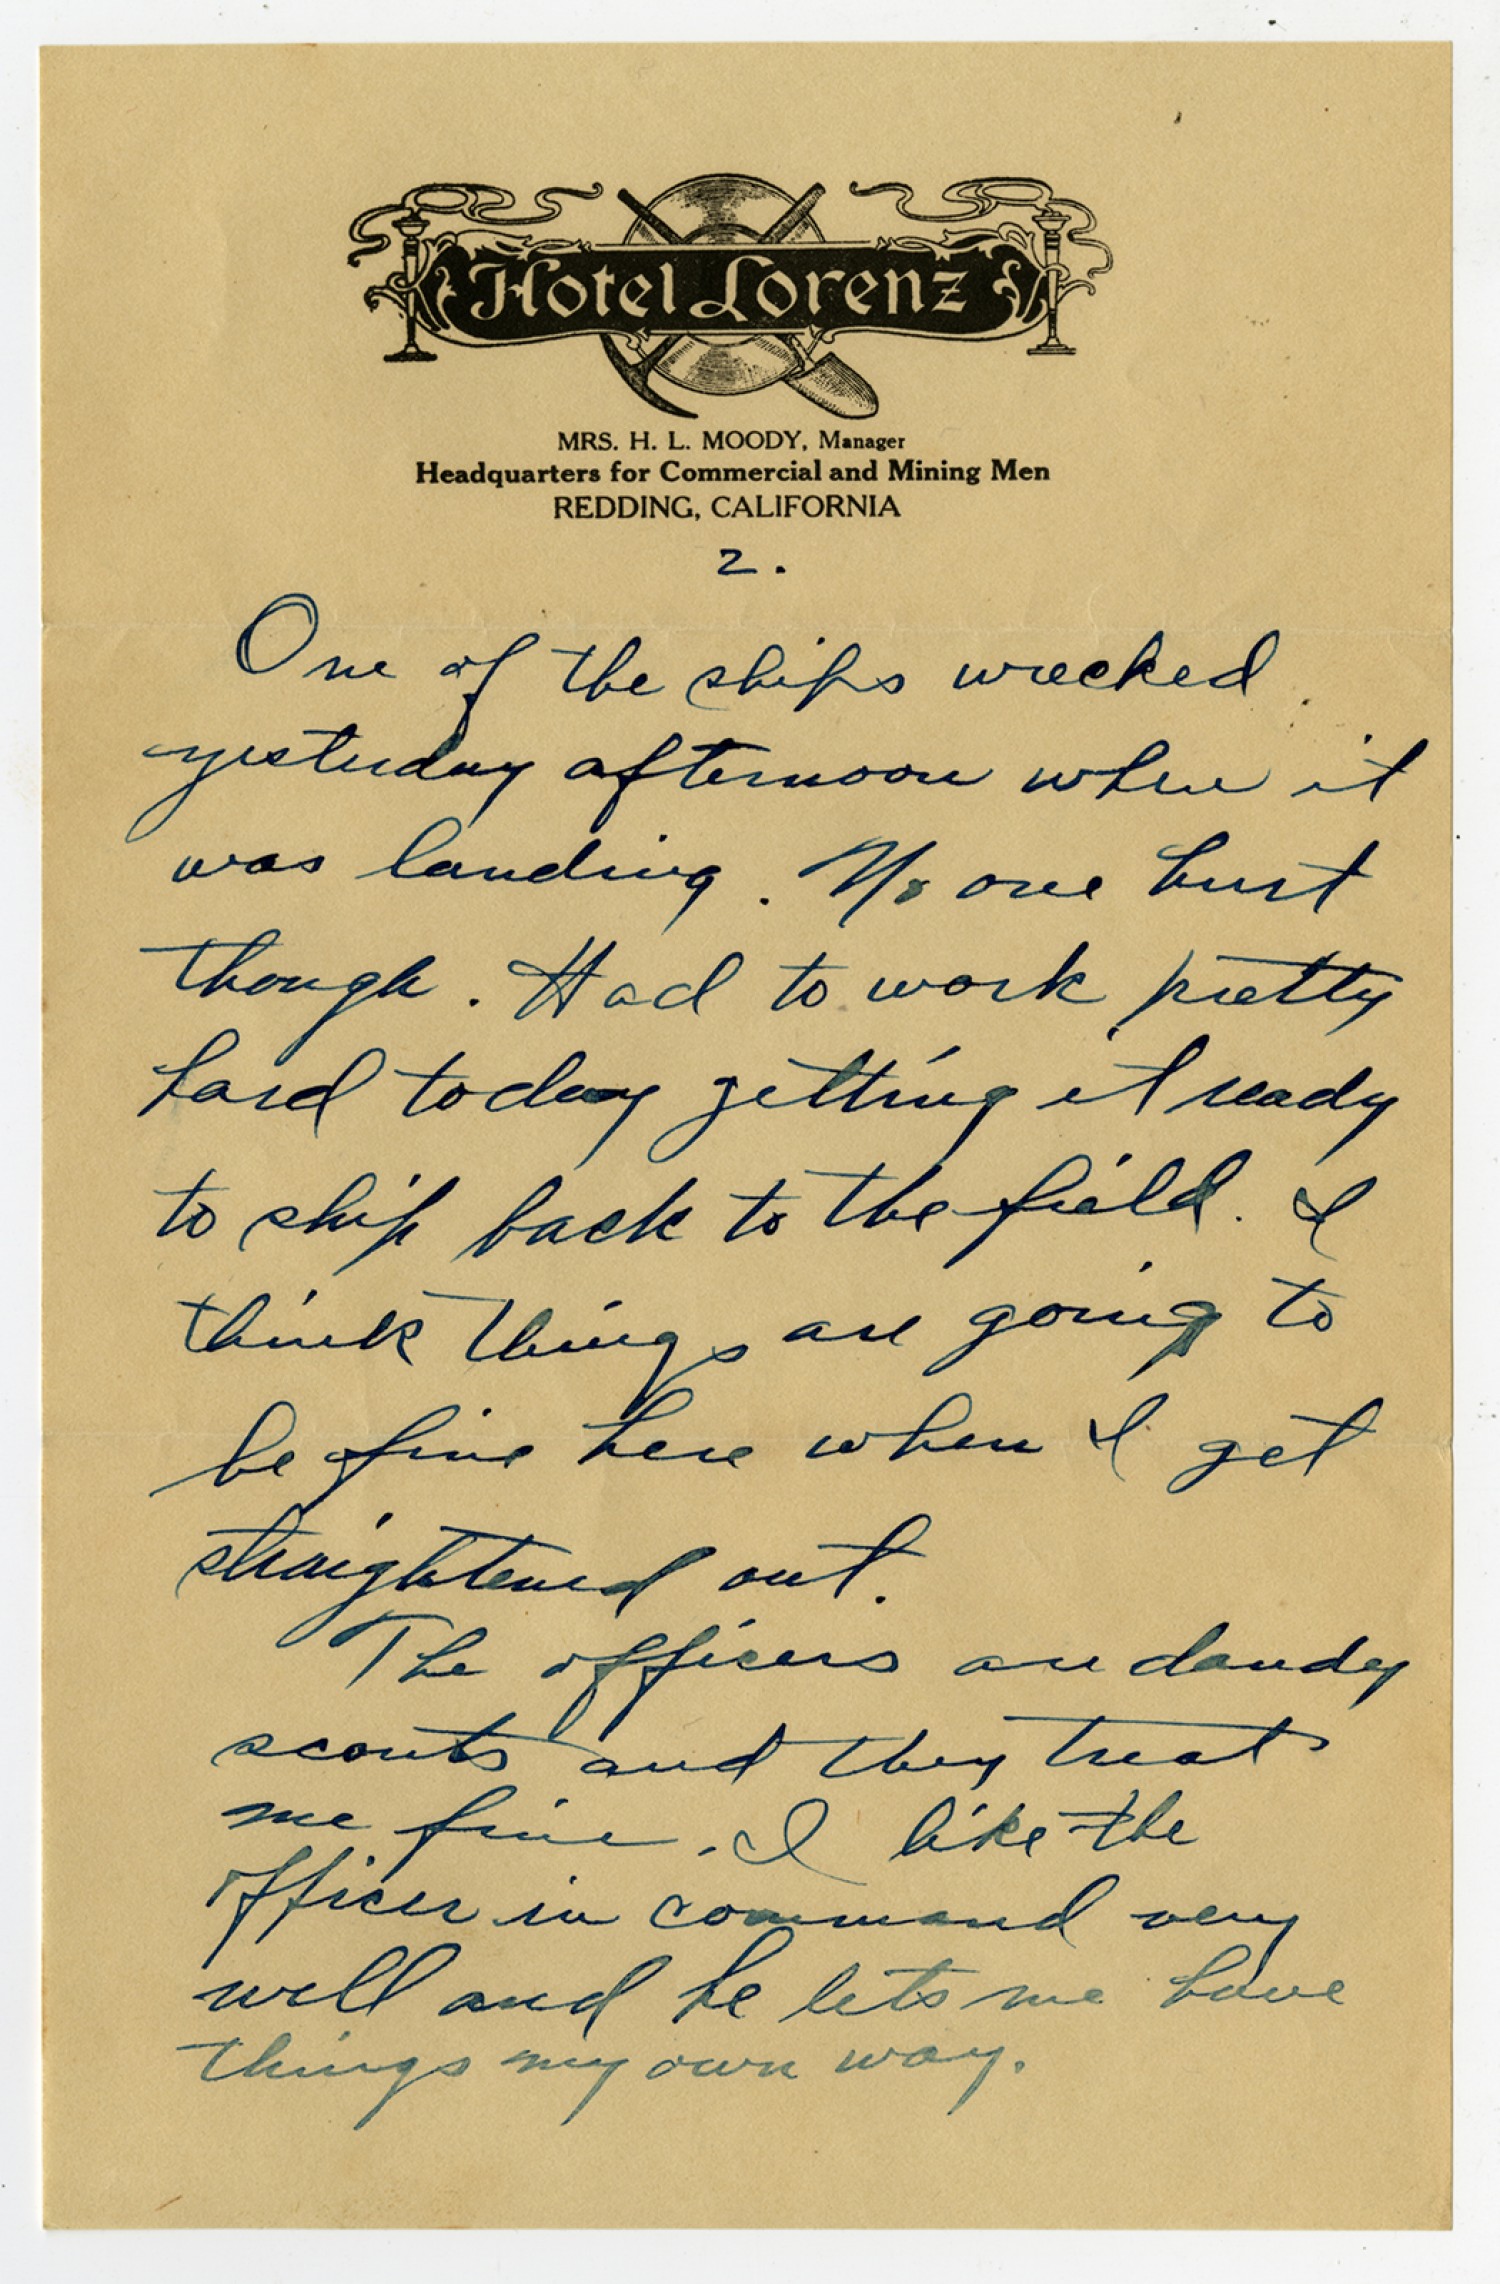 Hotel Lorenz
MRS. H. L. MOODY, Manager
Headquarters for Commercial and Mining Men
REDDING, CALIFORNIA
2.
One of the ships wrecked
yesterday afternoon when it
was landing. No one hurt
though. Had to work pretty
hard today getting it ready
to ship back to the field. I
think things are going to
be fine here when I get
straightened out.
The officers are dandy
scouts and they treat
me fine. I like the
officer in command very
well and he lets me have
things my own way.